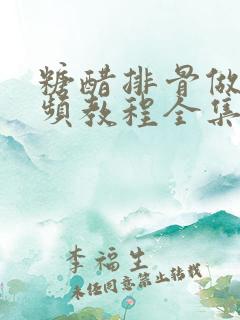 糖醋排骨做
频教程全集
李福生
未经同意禁止转载